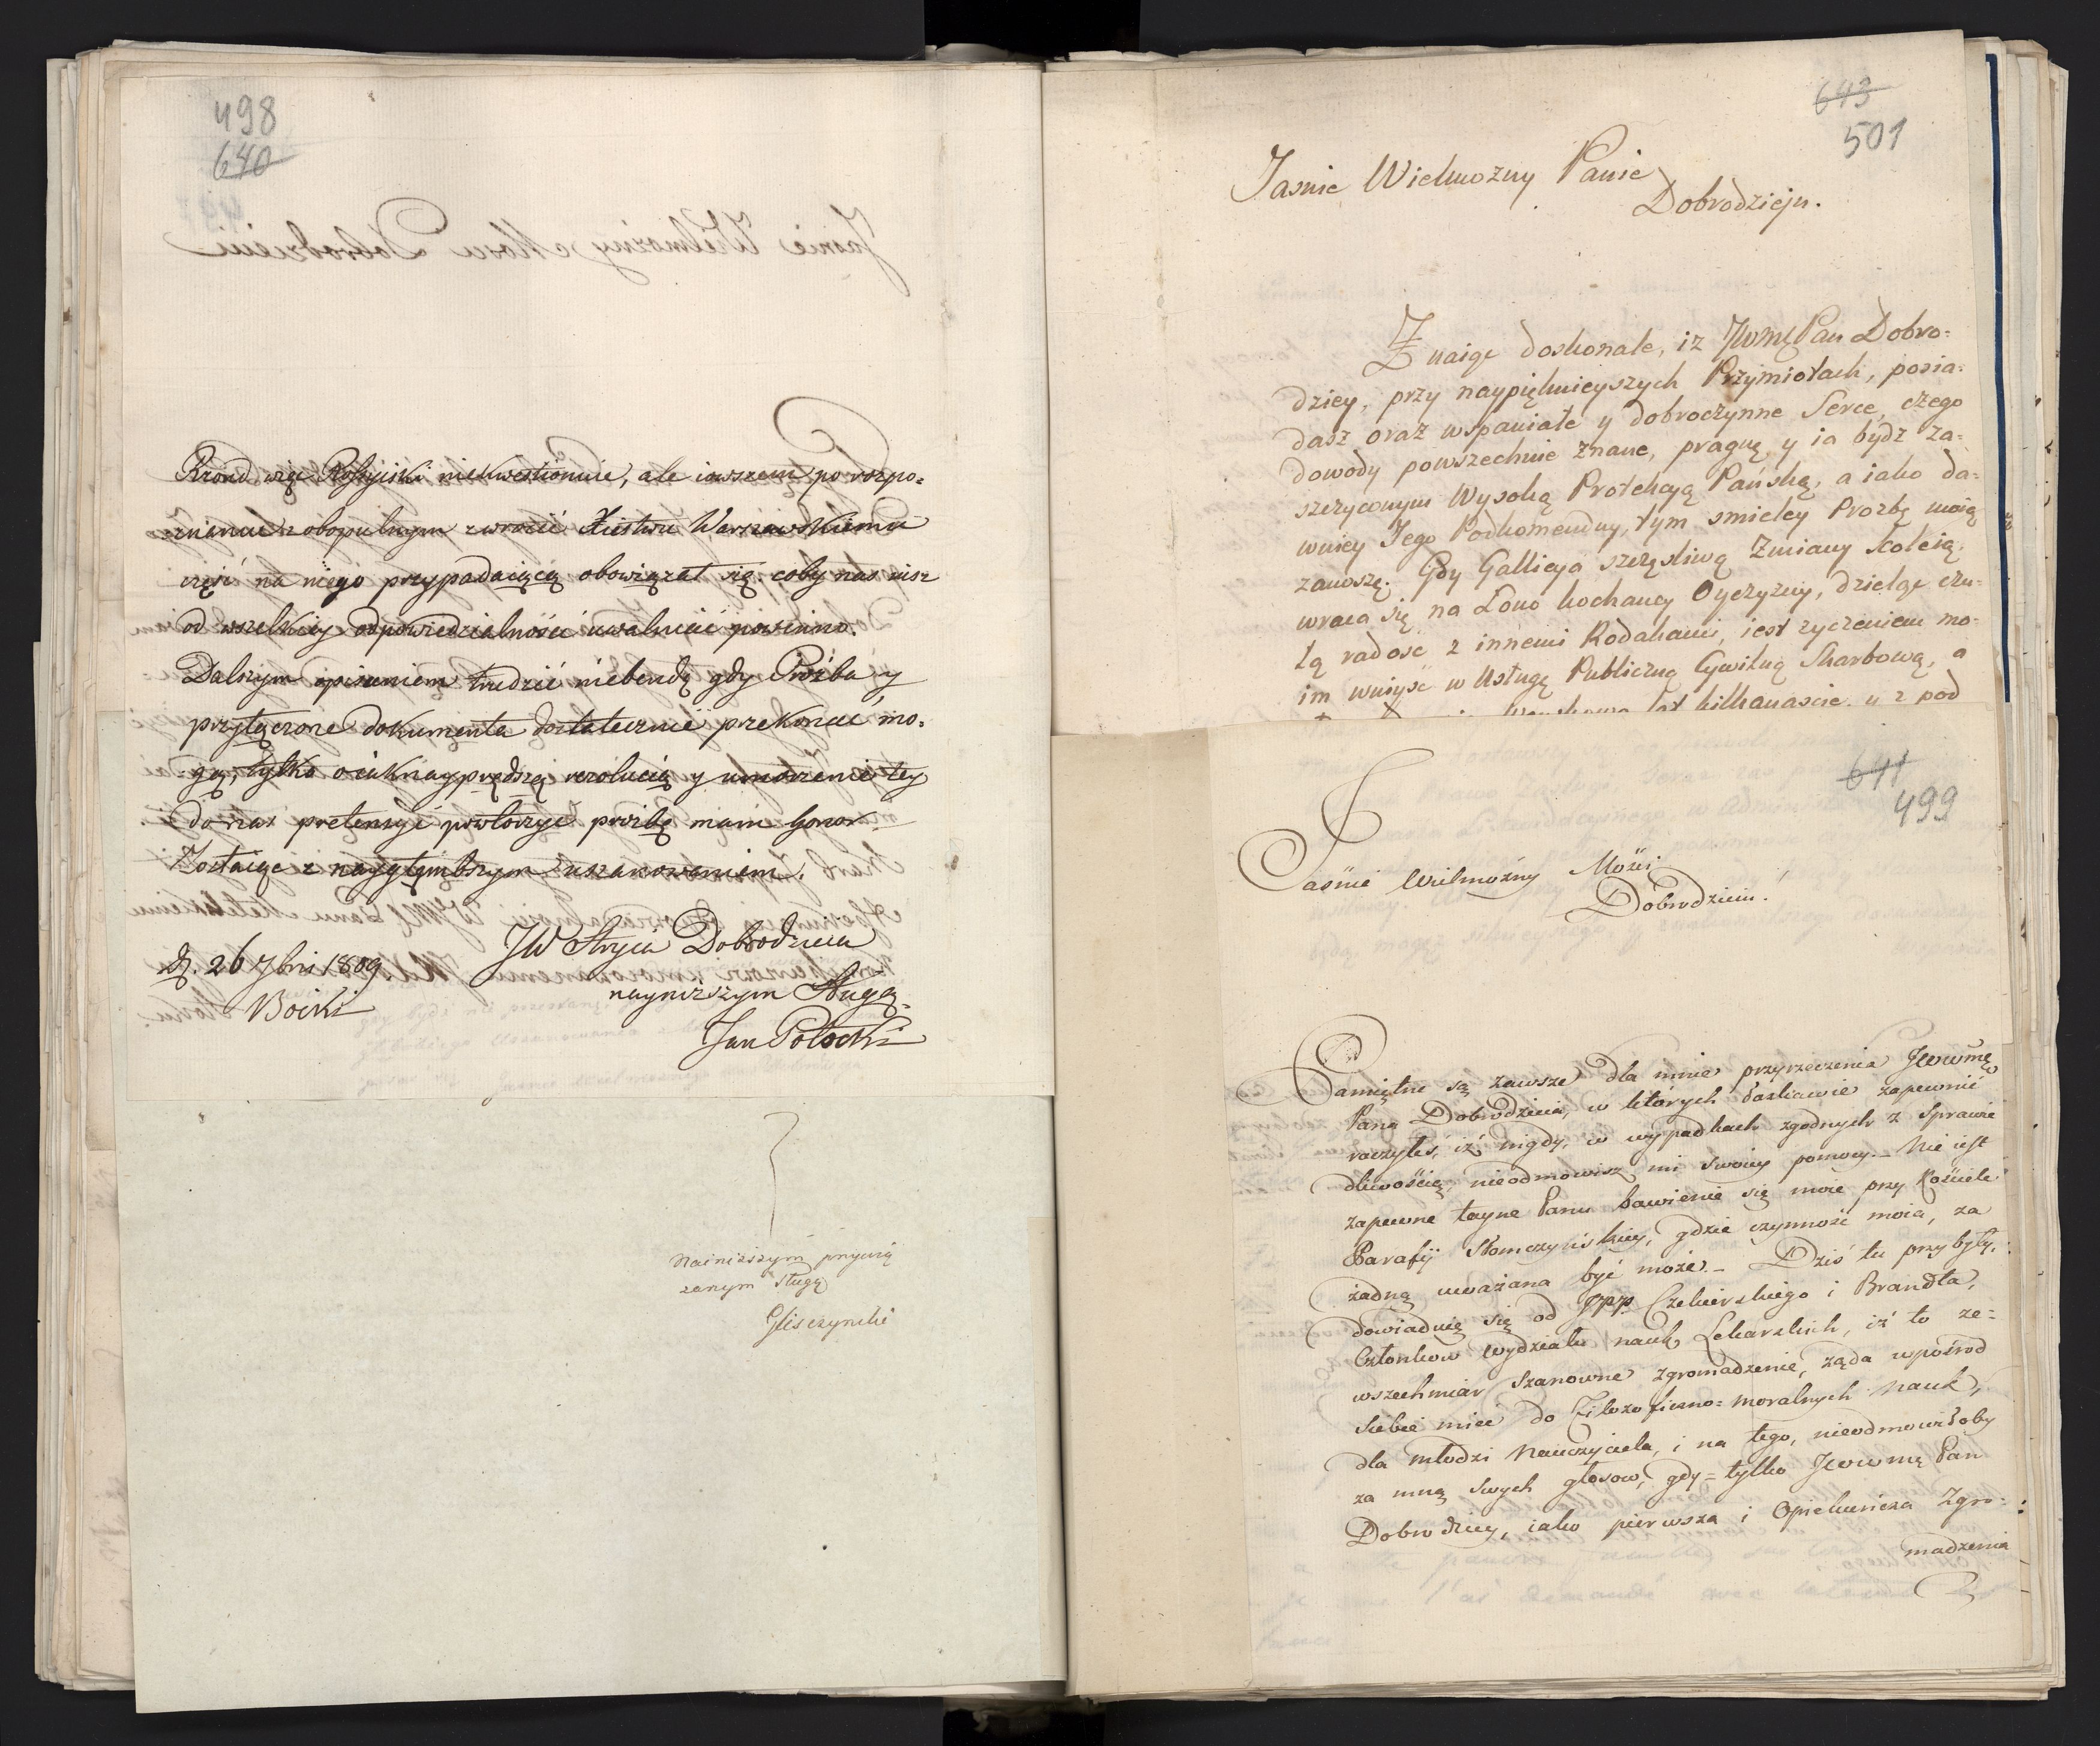 498
640
Rząd więc Rossyiski niekwestionuie, ale iawszem po rozpo=
cznianiu z obopulnym zwrocić Xięstwu Warszawskiemu
część na niego przypadaiącą obowiązał się. coby nas iusz
od wszelkiey odpowiedzialności uwalniać powinno.
Dalszym opisaniem trudzić niebendę gdy Prośba y
przyłączone dokumenta dostatecznie przekonać mo=
gą, tylko o iaknayprędszą rezolucią y umorzenie tey
do nas pretensyi powtorzyć proźbę mam honor
Zostaiąc z naygłęmbszym uszanowaniem.
JW Stryia Dobrodzieia
d. 26 7bris 1809
Boćki
nayniższym Sługą
Jan Potocki
Nainiższym przywią
zanym Sługą
Gliszczynski
643
501
Jasnie Wielmozny Panie
Dobrodzieju.
Znaiąc doskonale, iz JWMę Pan Dobro=
dziey, przy naypięknieyszych Przymiotach, posia=
dasz oraz wspaniałe y dobroczynne Serce, czego
dowody powszechnie znane, pragnę y ia bydz za=
szczyconym Wysoką Protekcyą Pańską, a iako da=
wniey Jego Podkomendny, tym smieley Prozbę moią
zanoszę. Gdy Gallicya szczęsliwą Zmiany Koleią.
wraca się na Łono kochaney Oyczyzny, dzieląc czu=
łą radosc z innemi Rodakami, iest zyczeniem mo=
im wniysc w Usługę Publiczną Cywilną Skarbową, a
lat kilkanascie y z pod
641
499
Jaśnie Wielmożny Mości
Dobrodzieiu.
Pamiętne są zawsze dla mnie przyrzeczenia JWWMę
Pana Dobrodzieia, w których łaskawie zapewnić
raczyłeś, iż nigdy, w wypadkach zgodnych z Sprawie
dliwością, nieodmowisz mi swoiey pomocy. – Nie iest
zapewne tayne Panu bawienie się moie przy Kościele
Parafij Słomczyńskiey, gdzie czynność moia, za
żadną uważana być może. – Dziś tu przybyły,
dowiaduię się od JPP Czekierskiego i Brandta,
Członkow Wydziału nauk Lekarskich, iż to ze=
wszechmiar Szanowne Zgromadzenie, żąda wpośrod
Siebie mieć do Filozoficzno=moralnych Nauk,
dla młodzi Nauczyciela, i na tego, nieodmowiłoby
za mną swych głosow, gdy=tylko JWWMę Pan
Dobrodziey, iako pierwsza i Opiekuńcza Zgro=
madzenia